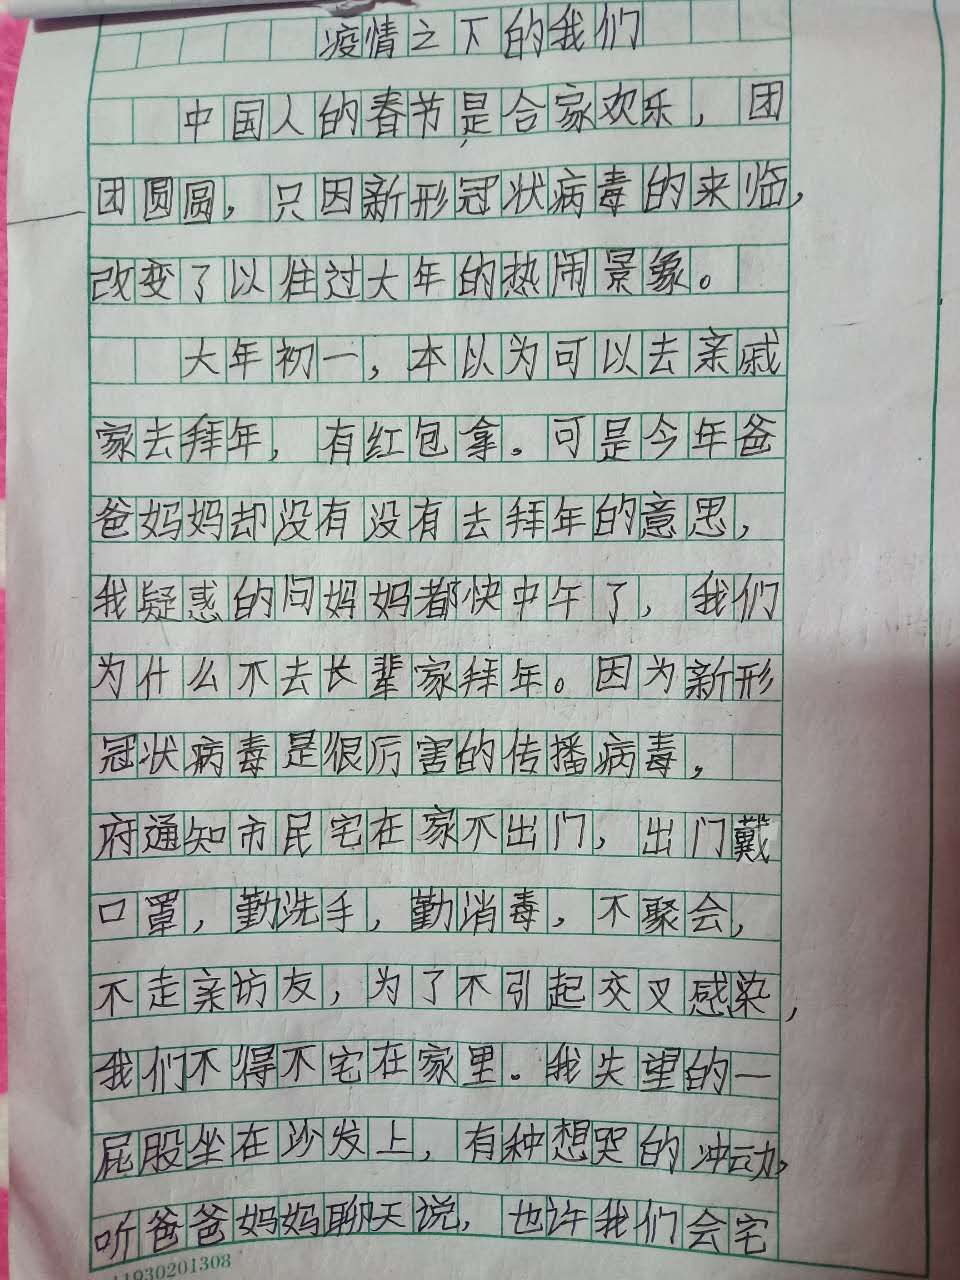 疫情之下的我们
中国人的春节是合家欢乐，团
团圆圆，只因新形冠状病毒的来临，
改变了以往过大年的热闹景象。
大年初一，本以为可以去亲戚
家去拜年，有红包拿。可是今年爸
爸妈妈却没有没有去拜年的意思，
我疑惑的问妈妈都快中午了，我们
为什么不去长辈家拜年。因为新形
冠状病毒是很厉害的传播病毒，
府通知市民宅在家不出门，出门戴
口罩，勤洗手，勤消毒，不聚会，
不走亲访友，为了不引起交叉感染，
我们不得不宅在家里。我失望的一
屁股坐在沙发上，有种想哭的冲动，
听爸爸妈妈聊天说，也许我们会宅
11930201308